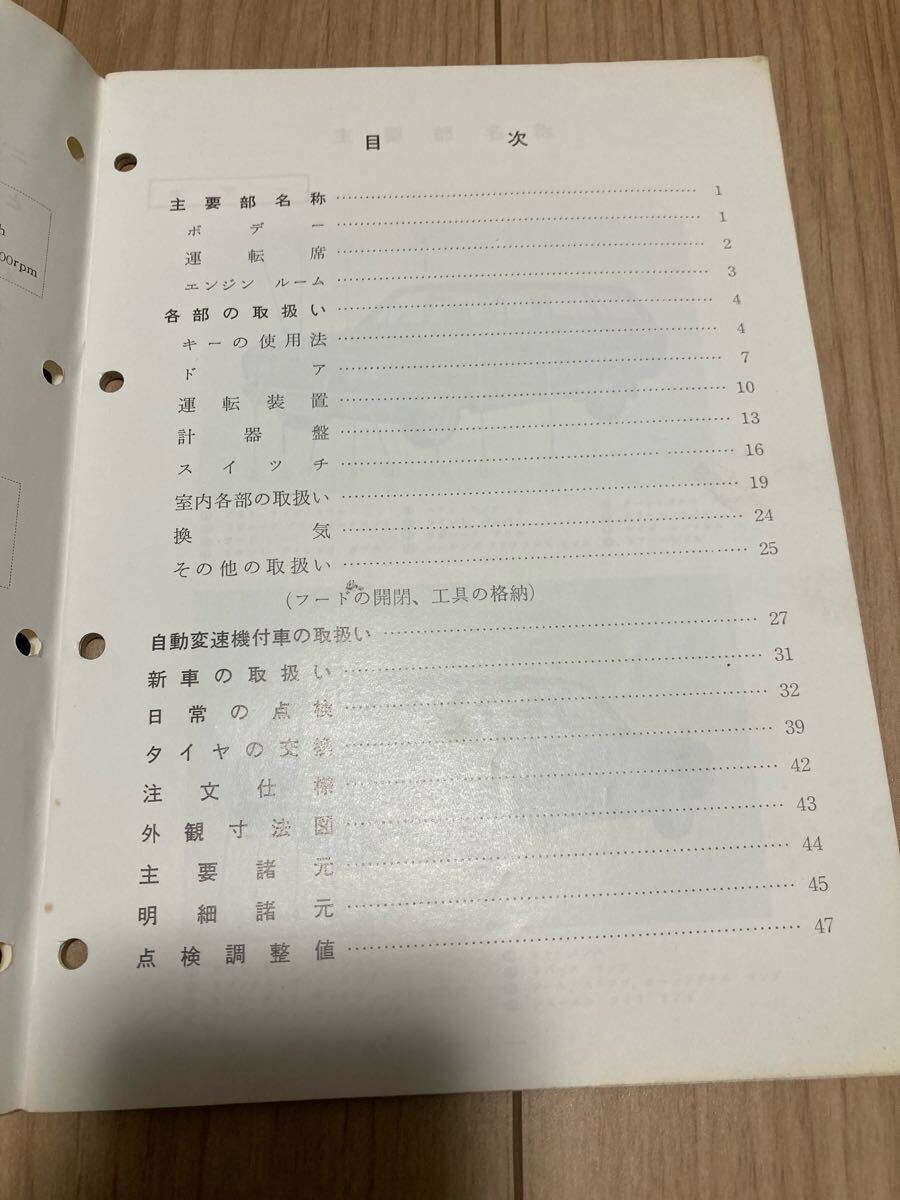 目次
主要部名称 1
ボデー 1
運転席 2
エンジン ルーム 3
各部の取扱い 4
キーの使用法 4
ドア 7
運転装置 10
計器盤 13
スイッチ 16
室内各部の取扱い 19
換気 24
その他の取扱い 25
(フードの開閉、工具の格納)
自動変速機付車の取扱い 27
新車の取扱い 31
日常の点検 32
タイヤの交換 39
注文仕様 42
外観寸法図 43
主要諸元 44
明細諸元 45
点検調整値 47
と
h
00rpm